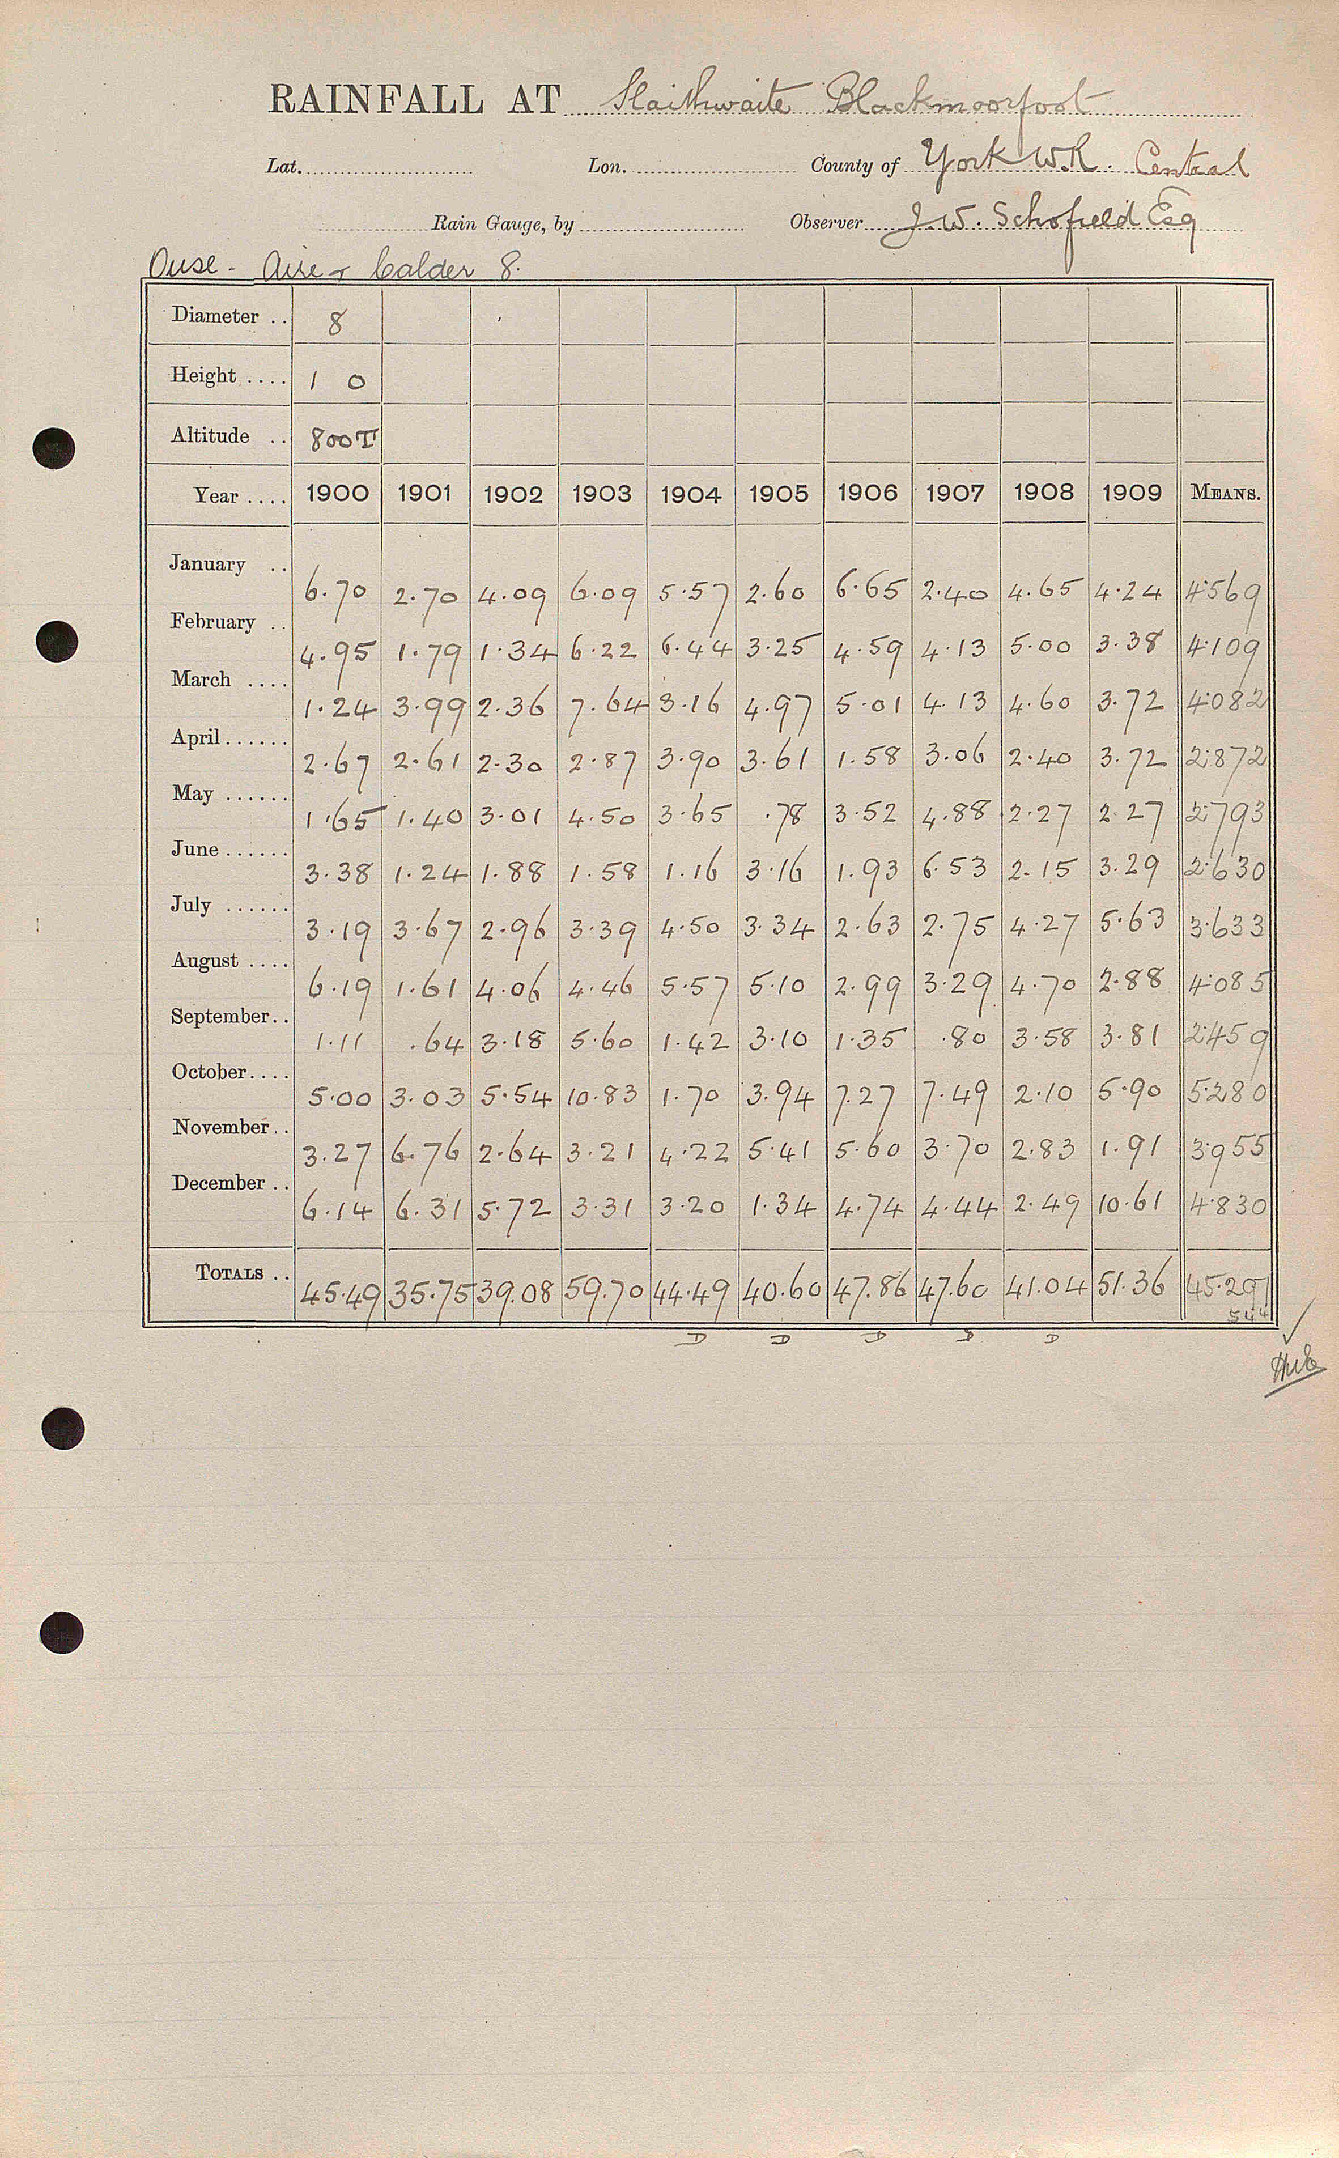 RAINFALL AT Slaithwaite Blackmoorfoot
Lat. Lon. County of York W.R. Central
Rain Gauge, by Observer J. W. Schofield Esq
Ouse - Aire & Calder 8.
Diameter .. 8
Height .... 1 0
Altitude .. 800T
Year .... 1900 1901 1902 1903 1904 1905 1906 1907 1908 1909 MEANS.
January .. 6.70 2.70 4.09 6.09 5.57 2.60 6.65 2.40 4.65 4.24 4.569
February .. 4.95 1.79 1.34 6.22 6.44 3.25 4.59 4.13 5.00 3.38 4.109
March .... 1.24 3.99 2.36 7.64 3.16 4.97 5.01 4.13 4.60 3.72 4.082
April...... 2.67 2.61 2.30 2.87 3.90 3.61 1.58 3.06 2.40 3.72 2.872
May ...... 1.65 1.40 3.01 4.50 3.65 .78 3.52 4.88 2.27 2.27 2.793
June...... 3.38 1.24 1.88 1.58 1.16 3.16 1.93 6.53 2.15 3.29 2.630
July ...... 3.19 3.67 2.96 3.39 4.50 3.34 2.63 2.75 4.27 5.63 3.633
August .... 6.19 1.61 4.06 4.46 5.57 5.10 2.99 3.29 4.70 2.88 4.085
September.. 1.11 .64 3.18 5.60 1.42 3.10 1.35 .80 3.58 3.81 2.459
October.... 5.00 3.03 5.54 10.83 1.70 3.94 7.27 7.49 2.10 5.90 5.280
November.. 3.27 6.76 2.64 3.21 4.22 5.41 5.60 3.70 2.83 1.91 3.955
December .. 6.14 6.31 5.72 3.31 3.20 1.34 4.74 4.44 2.49 10.61 4.830
TOTALS .. 45.49 35.75 39.08 59.70 44.49 40.60 47.86 47.60 41.04 51.36 45.297
544
D D D D D